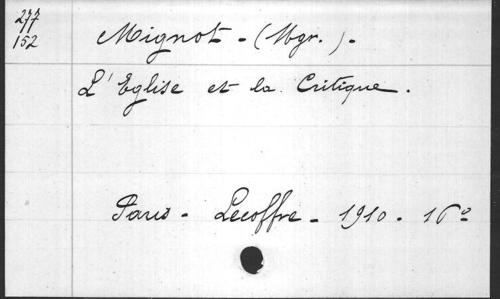 277
152
Mignot - (Mgr.) -
L'Eglise et la Critique.
Paris - Lecoffre - 1910 - 16º